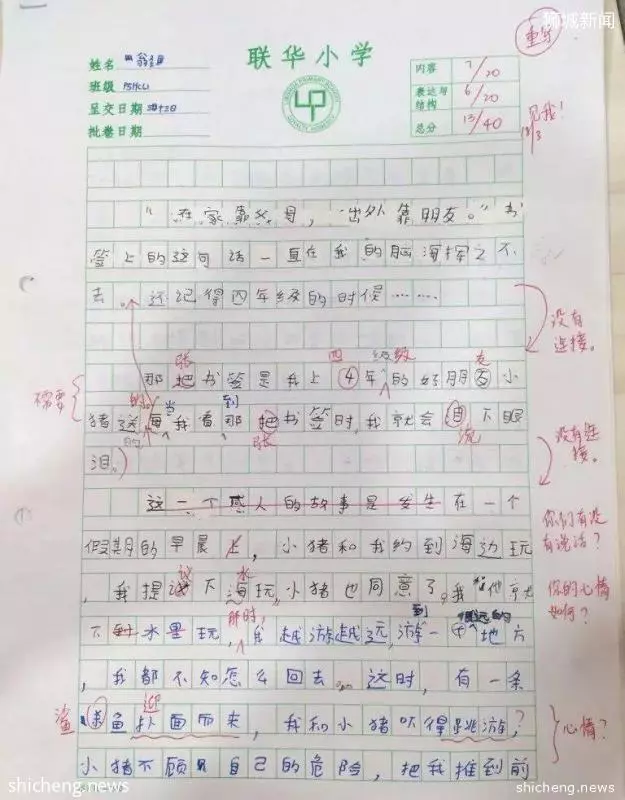 狮城新闻
重写
联华小学
姓名
班级 P5HCL1
呈交日期
批卷日期
内容 7/20
表达与结构 6/20
总分 13/40
见我!
13/3
“在家靠父母，出外靠朋友。”书
签上的这句话一直在我的脑海挥之不
去。还记得四年级的时候……
没有连接。
张 四 级级 友
那把书签是我上4年的好朋友小
不需要
的。 当 到
猪送每我看那把书签时，我就会泪下眼
的 张 流
泪。
没有连接。
这一个感人的故事是发生在一个
你们有没有说话？
假期的早晨上，小猪和我约到海边玩
议 水
，我提议下海玩，小猪也同意了。我和他就
你的心情如何？
那时， 到 很远的
下到水里玩，我越游越远，游一个地方
，我都不知怎么回去。这时，有一条
鲨 迎
鱼扑面而来，我和小猪吓得跳游？
心情？
小猪不顾自己的危险，把我推到前
shicheng.news
shicheng.news